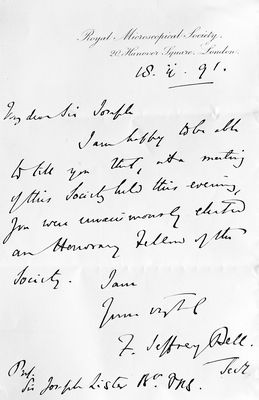 Royal Microscopical Society,
20 Hanover Square, London.
18. . 91.
My dear Sir Joseph
I am happy to be able
to tell you that, at a meeting
of this Society held this evening,
you were unanimously elected
an Honorary Fellow of this
Society. I am
Yours
F. Jeffrey Bell.
Secy
Prof.
Sir Joseph Lister Bt. FRS.